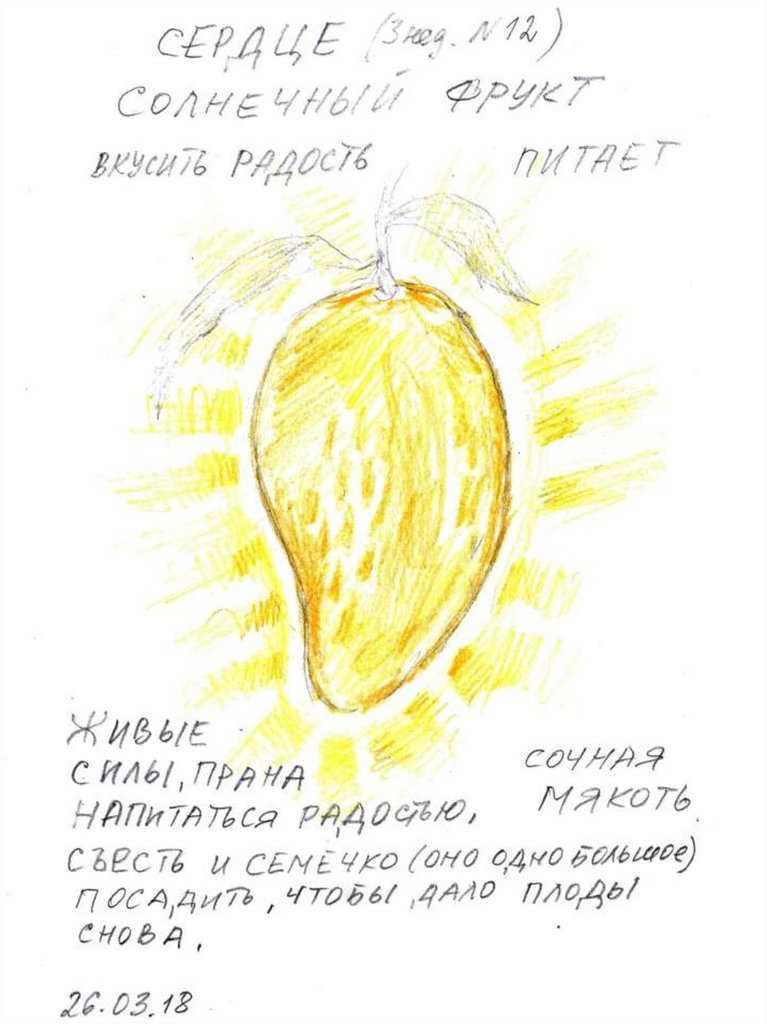 СЕРДЦЕ (3 нед. N 12)
СОЛНЕЧНЫЙ ФРУКТ
ВКУСИТЬ РАДОСТЬ ПИТАЕТ
ЖИВЫЕ
СИЛЫ, ПРАНА
СОЧНАЯ
МЯКОТЬ
НАПИТАТЬСЯ РАДОСТЬЮ,
СЪЕСТЬ И СЕМЕЧКО (ОНО ОДНО БОЛЬШОЕ)
ПОСАДИТЬ, ЧТОБЫ ДАЛО ПЛОДЫ
СНОВА.
26.03.18